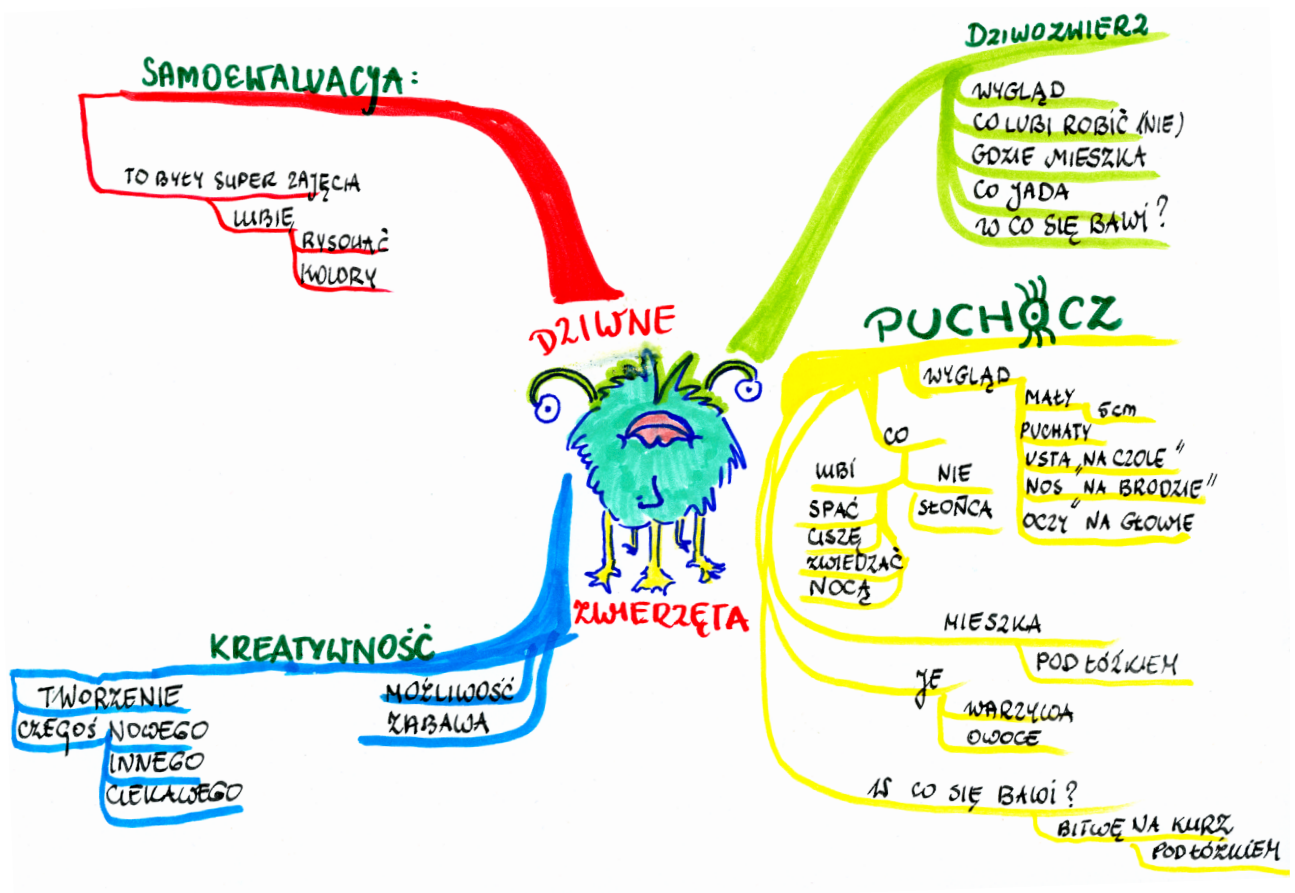 SAMOEWALUACYJA:
TO BYŁY SUPER ZAJĘCIA
LUBIĘ
RYSOWAĆ
KOLORY
DZIWOZWIERZ
WYGLĄD
CO LUBI ROBIĆ (NIE)
GDZIE MIESZKA
CO JADA
W CO SIĘ BAWI?
DZIWNE
ZWIERZĘTA
PUCHOCZ
WYGLĄD
MAŁY
5cm
PUCHATY
USTA "NA CZOLE"
NOS "NA BRODZIE"
OCZY "NA GŁOWIE
CO
LUBI
NIE
SPAĆ
CISZĘ
ZWIEDZAĆ
NOCĄ
SŁOŃCA
MIESZKA
POD ŁÓŻKIEM
JE
WARZYWA
OWOCE
W CO SIĘ BAWI?
BITWĘ NA KURZ
POD ŁÓŻKIEM
KREATYWNOŚĆ
TWORZENIE
CZEGOŚ NOWEGO
INNEGO
CIEKAWEGO
MOŻLIWOŚĆ
ZABAWA